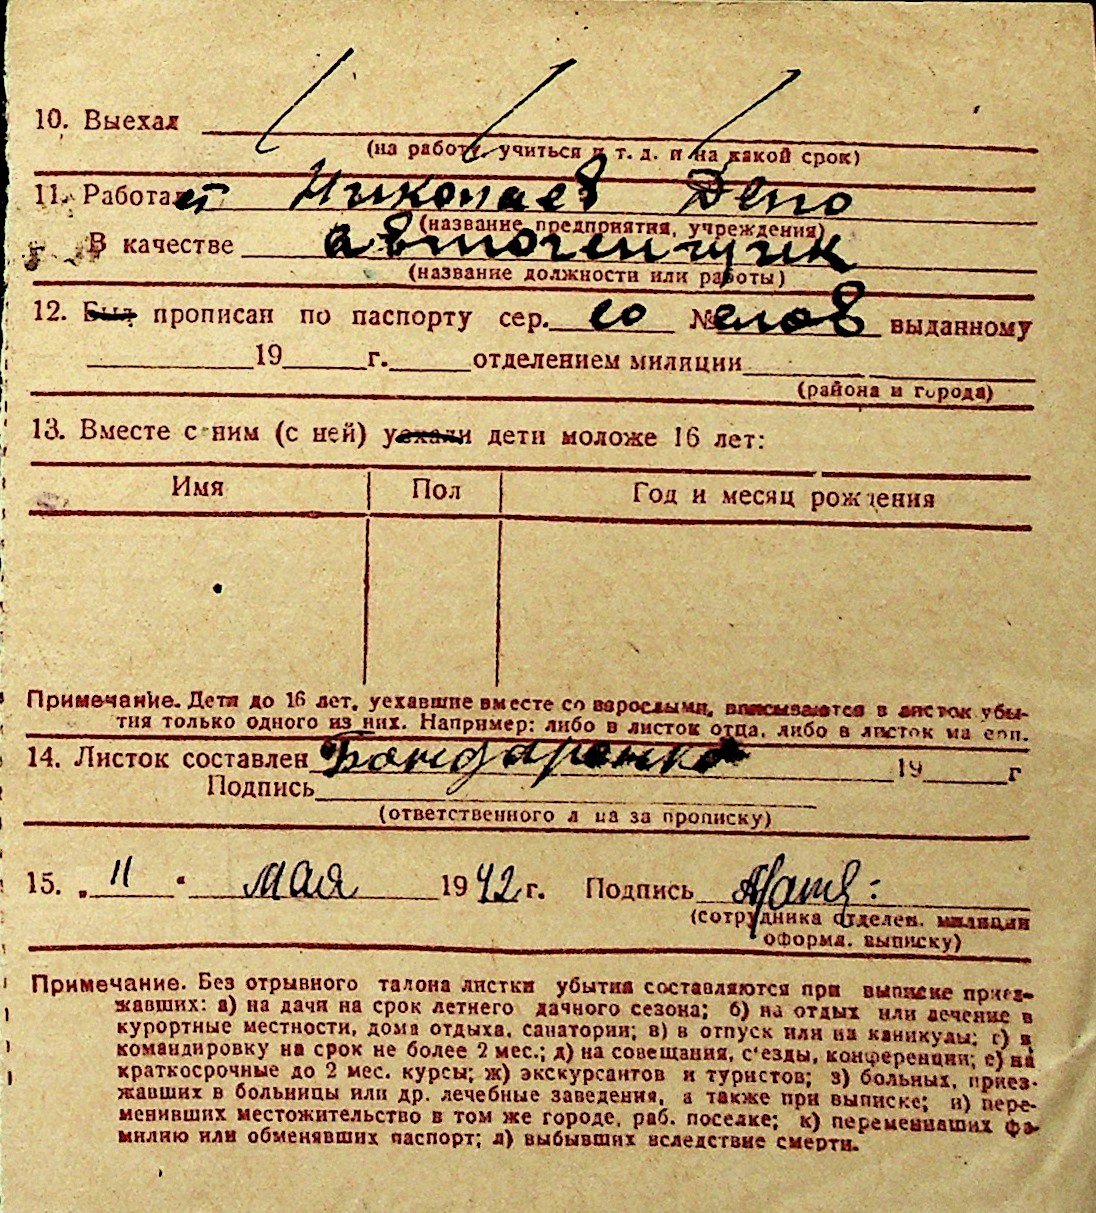 10. Выехал
(на работу, учиться и т. д. и на какой срок)
11. Работает Николаев Депо
(название предприятия, учреждения)
В качестве автогенщик
(название должности или работы)
12. Был прописан по паспорту сер. № выданному
19 г. отделением милиции
(района и города)
13. Вместе с ним (с ней) уехали дети моложе 16 лет:
Имя Пол Год и месяц рождения
Примечание. Дети до 16 лет, уехавшие вместе со взрослыми, вписываются в листок убы-
тия только одного из них. Например: либо в листок отца, либо в листок ма ери.
14. Листок составлен Бондаренко 19 г
Подпись
(ответственного л ца за прописку)
15. „ 11 " мая 1942 г. Подпись
(сотрудника отделен. милиции
оформл. выписку)
Примечание. Без отрывного талона листки убытия составляются при выписке приез-
жавших: а) на дачи на срок летнего дачного сезона; б) на отдых или лечение в
курортные местности, дома отдыха, санатории; в) в отпуск или на каникулы; г) в
командировку на срок не более 2 мес.; д) на совещания, с'езды, конференции; е) на
краткосрочные до 2 мес. курсы; ж) экскурсантов и туристов; з) больных, приез-
жавших в больницы или др. лечебные заведения, а также при выписке; и) пере-
менивших местожительство в том же городе, раб. поселке; к) переменивших фа-
милию или обменявших паспорт; л) выбывших вследствие смерти.